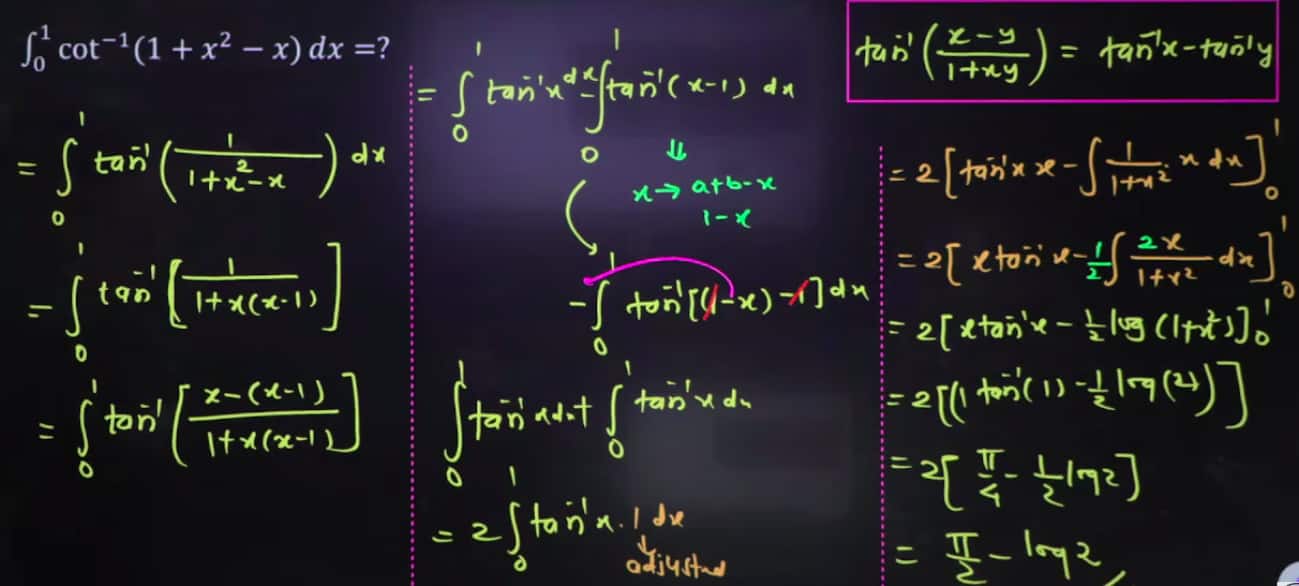 ∫₀¹ cot⁻¹(1 + x² − x) dx =?
= ∫₀¹ tan⁻¹ (1/(1+x²−x)) dx
= ∫₀¹ tan⁻¹ [1/(1+x(x−1))]
= ∫₀¹ tan⁻¹ [(x−(x−1))/(1+x(x−1))]
= ∫₀¹ tan⁻¹x dx − ∫₀¹ tan⁻¹(x−1) dx
⇓
x → a+b−x
1−x
−∫₀¹ tan⁻¹[(1−x)−1] dx
∫₀¹ tan⁻¹x dx + ∫₀¹ tan⁻¹x dx
= 2 ∫₀¹ tan⁻¹x . 1 dx
↓
adjusted
tan⁻¹ ((x−y)/(1+xy)) = tan⁻¹x − tan⁻¹y
= 2 [tan⁻¹x x − ∫ 1/(1+x²) x dx]₀¹
= 2 [x tan⁻¹x − 1/2 ∫ 2x/(1+x²) dx]₀¹
= 2 [x tan⁻¹x − 1/2 log (1+x²)]₀¹
= 2 [(1 tan⁻¹(1) − 1/2 log(2))]
= 2 [π/4 − 1/2 log2]
= π/2 − log2